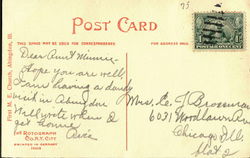 73
POST CARD
THIS SPACE MAY BE USED FOR CORRESPONDENCE
FOR ADDRESS ONLY
First M. E. Church, Abingdon, Ill.
Dear Aunt Minnie -
Hope you are well,
I am having a dandy
visit in Abingdon
Will write when I
get home
Mrs. Co. J.
6031 Woodlawn Ave
Chicago Ills
Flat 2
THE ROTOGRAPH CO., N.Y. CITY
PRINTED IN GERMANY